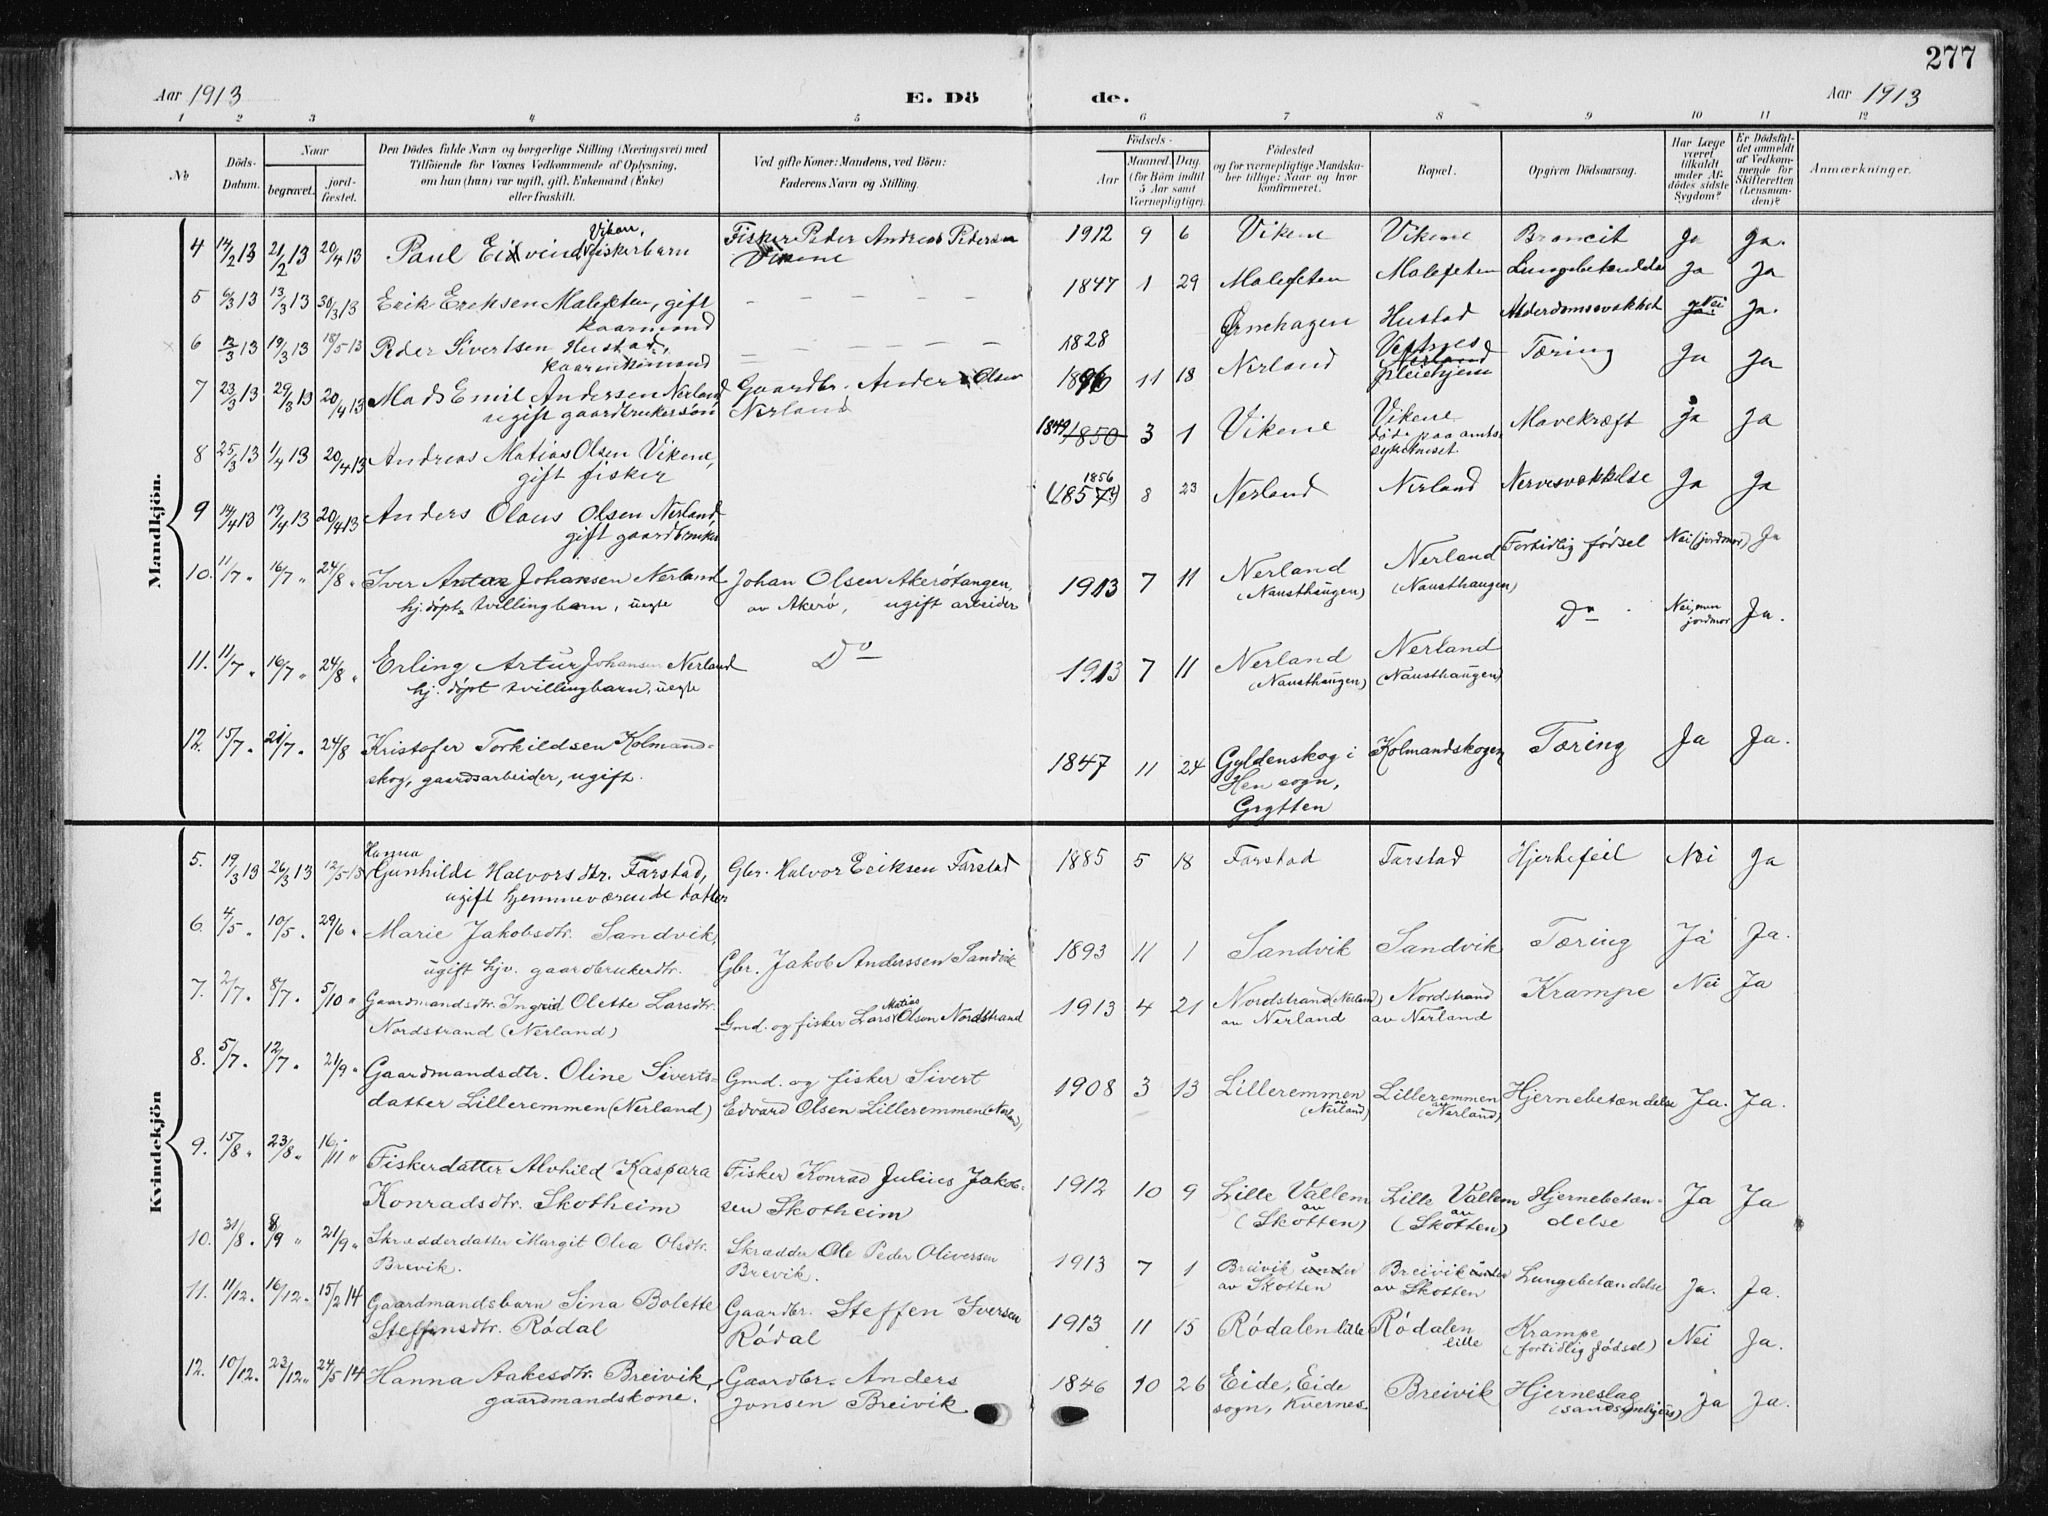 277
Aar 1913
E. Dö
de.
Aar 1913
1 2 3 4 5 6 7 8 9 10 11 12
No
Döds-
Datum.
Naar
begravet.
jord-
fæstet.
Den Dödes fulde Navn og borgerlige Stilling (Næringsvei) med
Tilföiende for Voxnes Vedkommende af Oplysning,
om han (hun) var ugift, gift, Enkemand (Enke)
eller fraskilt.
Ved gifte Koner: Mandens, ved Börn:
Faderens Navn og Stilling.
Födsels-
Aar
Maaned.
Dag.
(for Börn indtil
5 Aar samt
Værnepligtige).
Födested
og for værnepligtige Mandska-
ber tillige: Naar og hvor
konfirmeret.
Bopæl.
Opgiven Dödsaarsag.
Har Læge
været
tilkaldt
under Af-
dödes sidste
Sygdom?
Er Dödsfal-
det anmeldt
af Vedkom-
mende for
Skifteretten
(Lensman-
den)?
Anmærkninger.
Mandkjön.
4 14/2 13 21/2 13 20/4 13 Paul Eivind Viken, fiskerbarn Fisker Peder Andreas Pedersen 1912 9 6 Vikene Vikene Broncit Ja Ja.
Vikene
5 6/3 13 13/3 13 30/3 13 Erik Eriksen Malefeten, gift – – – – – 1847 1 29 Malefeten Malefeten Lungebetændelse Ja Ja
kaarmand
6 12/3 13 19/3 13 18/5 13 Peder Sivertsen Hustad, – – – – – 1828 Ørnehagen Hustad Alderdomssvakhet Nei Ja.
kaarenkemand
7 23/3 13 29/3 13 20/4 13 Mads Emil Andersen Nerland Gaardbr. Anders Olsen 1896 11 18 Nerland Vestnes Tæring Ja Ja
ugift gaardbrukersøn Nerland Nerland
pleiehjem
8 25/3 13 1/4 13 20/4 13 Andreas Matias Olsen Vikene, 1849 1850 3 1 Vikene Vikene Mavekræft Ja Ja
gift fisker døde paa amts-
sykehuset.
9 14/4 13 19/4 13 20/4 13 Anders Olaus Olsen Nerland, 1856 (1857?) 8 23 Nerland Nerland Nervesvækkelse Ja Ja
gift gaardbruker
10. 11/7 " 16/7 " 24/8 " Iver Anton Johansen Nerland Johan Olsen Akerøtangen, 1913 7 11 Nerland Nerland Fortidlig fødsel Nei (jordmor) Ja
hj. døpt tvillingbarn, uegte av Akerø, ugift arbeider (Nausthaugen) (Nausthaugen)
11. 11/7 " 16/7 " 24/8 " Erling Artur Johansen Nerland Do 1913 7 11 Nerland Nerland Do Nei, men Ja.
hj. døpt tvillingbarn, uegte (Nausthaugen) (Nausthaugen) jordmor
12. 15/7 " 21/7 " 24/8 Kristofer Torkildsen Kolmand- 1847 11 24 Gyldenskog i Kolmandskogen Tæring Ja Ja.
skog, gaardsarbeider, ugift. Hen sogn,
Grytten
Kvindekjön
5. 19/3 13 26/3 13 12/5 13 Hanna Gunhilde Halvorsdtr. Farstad, Gbr. Halvor Eriksen Farstad 1885 5 18 Farstad Farstad Hjertefeil Nei Ja
ugift hjemmeværende datter
6. 4/5 " 10/5 " 29/6 " Marie Jakobsdtr. Sandvik, Gbr. Jakob Anderssen Sandvik 1893 11 1 Sandvik Sandvik Tæring Ja Ja.
ugift hjv. gaardbrukerdtr.
7. 2/7 " 8/7 " 5/10 " Gaardmandsdtr. Ingrid Olette Larsdtr. Gmd. og fisker Lars Matias Olsen Nordstrand 1913 4 21 Nordstrand (Nerland) Nordstrand Krampe Nei Ja
Nordstrand (Nerland) av Nerland av Nerland
8. 5/7 " 12/7 " 21/9 " Gaardmandsdtr. Oline Siverts- Gmd. og fisker Sivert 1908 3 13 Lilleremmen Lilleremmen Hjernebetændelse Ja. Ja.
datter Lilleremmen (Nerland) Edvard Olsen Lilleremmen (Nerland) (av Nerland) (av Nerland)
9. 15/8 " 23/8 " 16/11 " Fiskerdatter Alvhild Kaspara Fisker Konrad Julius Jakob- 1912 10 9 Lille Vallem Lille Vallem Hjernebetæn- Ja Ja
Konradsdtr. Skotheim sen Skotheim (av Skotten) (av Skotten) delse
10. 31/8 " 8/9 " 21/9 " Skrædderdatter Margit Olea Olsdtr. Skrædder Ole Peder Oliversen 1913 7 1 Breivik under Breivik under Lungebetændelse Ja. Ja.
Brevik. Brevik. av Skotten av Skotten
11. 11/12 " 16/12 " 15/2 14 Gaardmandsbarn Sina Bolette Gaardbr. Steffen Iversen 1913 11 15 Rødalen lille Rødalen lille Krampe Nei Ja.
Steffensdtr. Rødal Rødal (fortidlig fødsel)
12. 10/12 " 23/12 " 24/5 14 Hanna Aakesdtr. Breivik, Gaardbr. Anders 1846 10 26 Eide, Eide Breivik Hjerneslag Ja Ja.
gaardmandskone. Jonsen Breivik sogn, Kvernes (sandsynligvis)